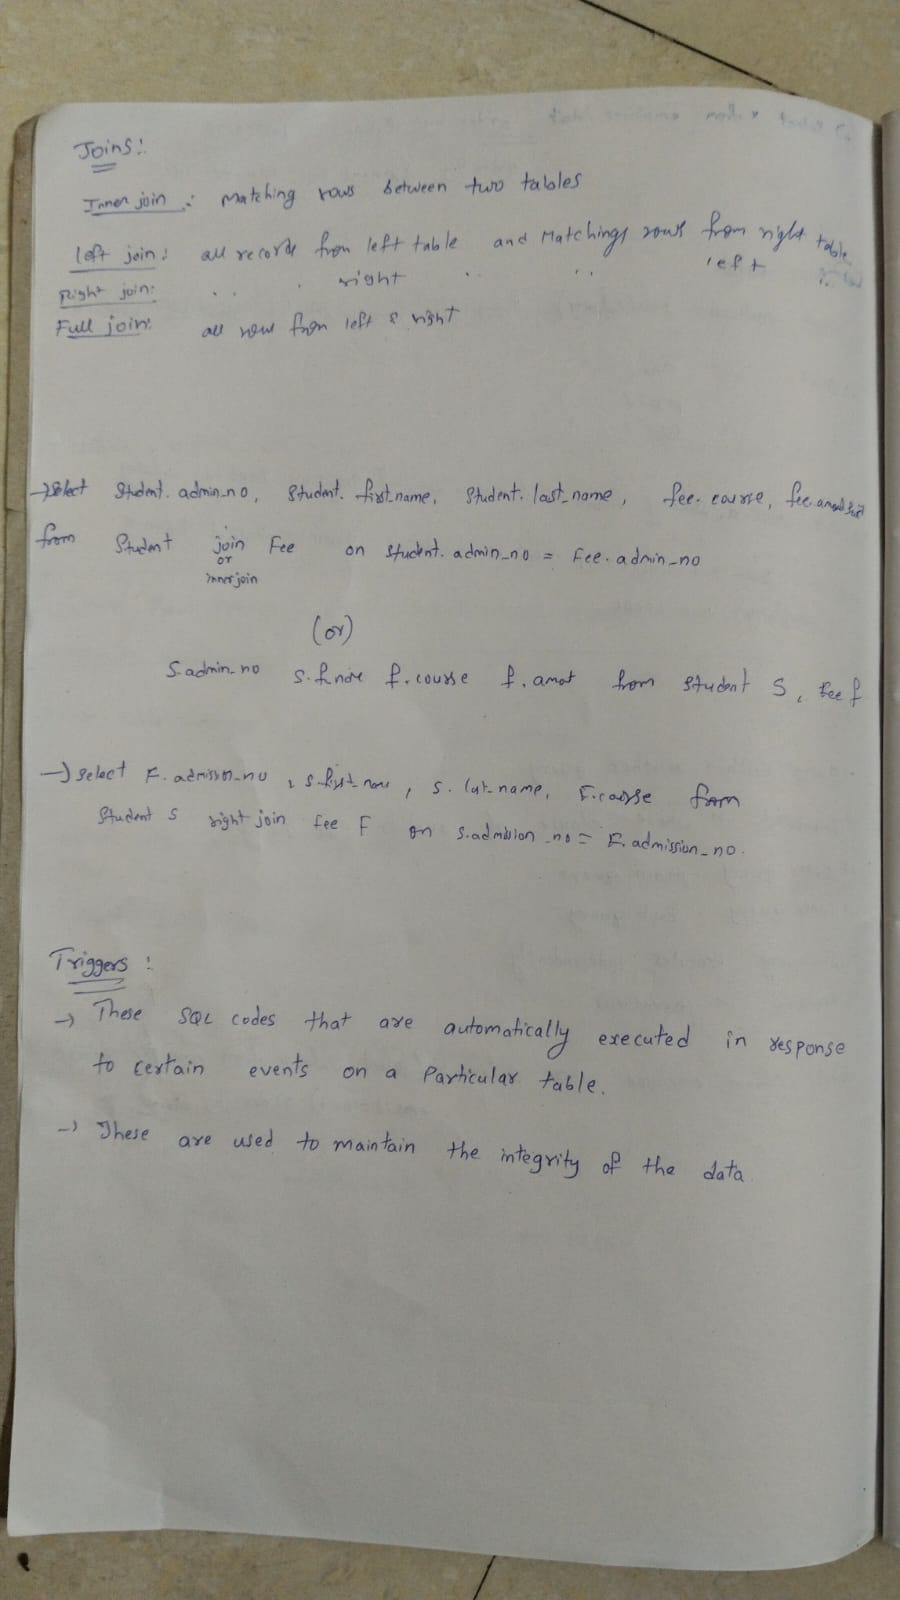 Joins:
Inner join : Matching rows between two tables
left join : all records from left table and Matchings rows from right table
Right join: " " " right " " left "
Full join: all rows from left & right
→ select Student. admin_no, Student. first_name, Student. last_name, fee. course, fee.
from Student join Fee on student. admin_no = Fee. admin_no
or
inner join
(or)
S.admin_no f. course f. from student S, Fee f
→ select F. admission_no , s. first_name , s. last_name, F.course from
Student S right join fee F on s.admission_no = F. admission_no.
Triggers :
→ These SQL codes that are automatically executed in response
to certain events on a Particular table.
→ These are used to maintain the integrity of the data